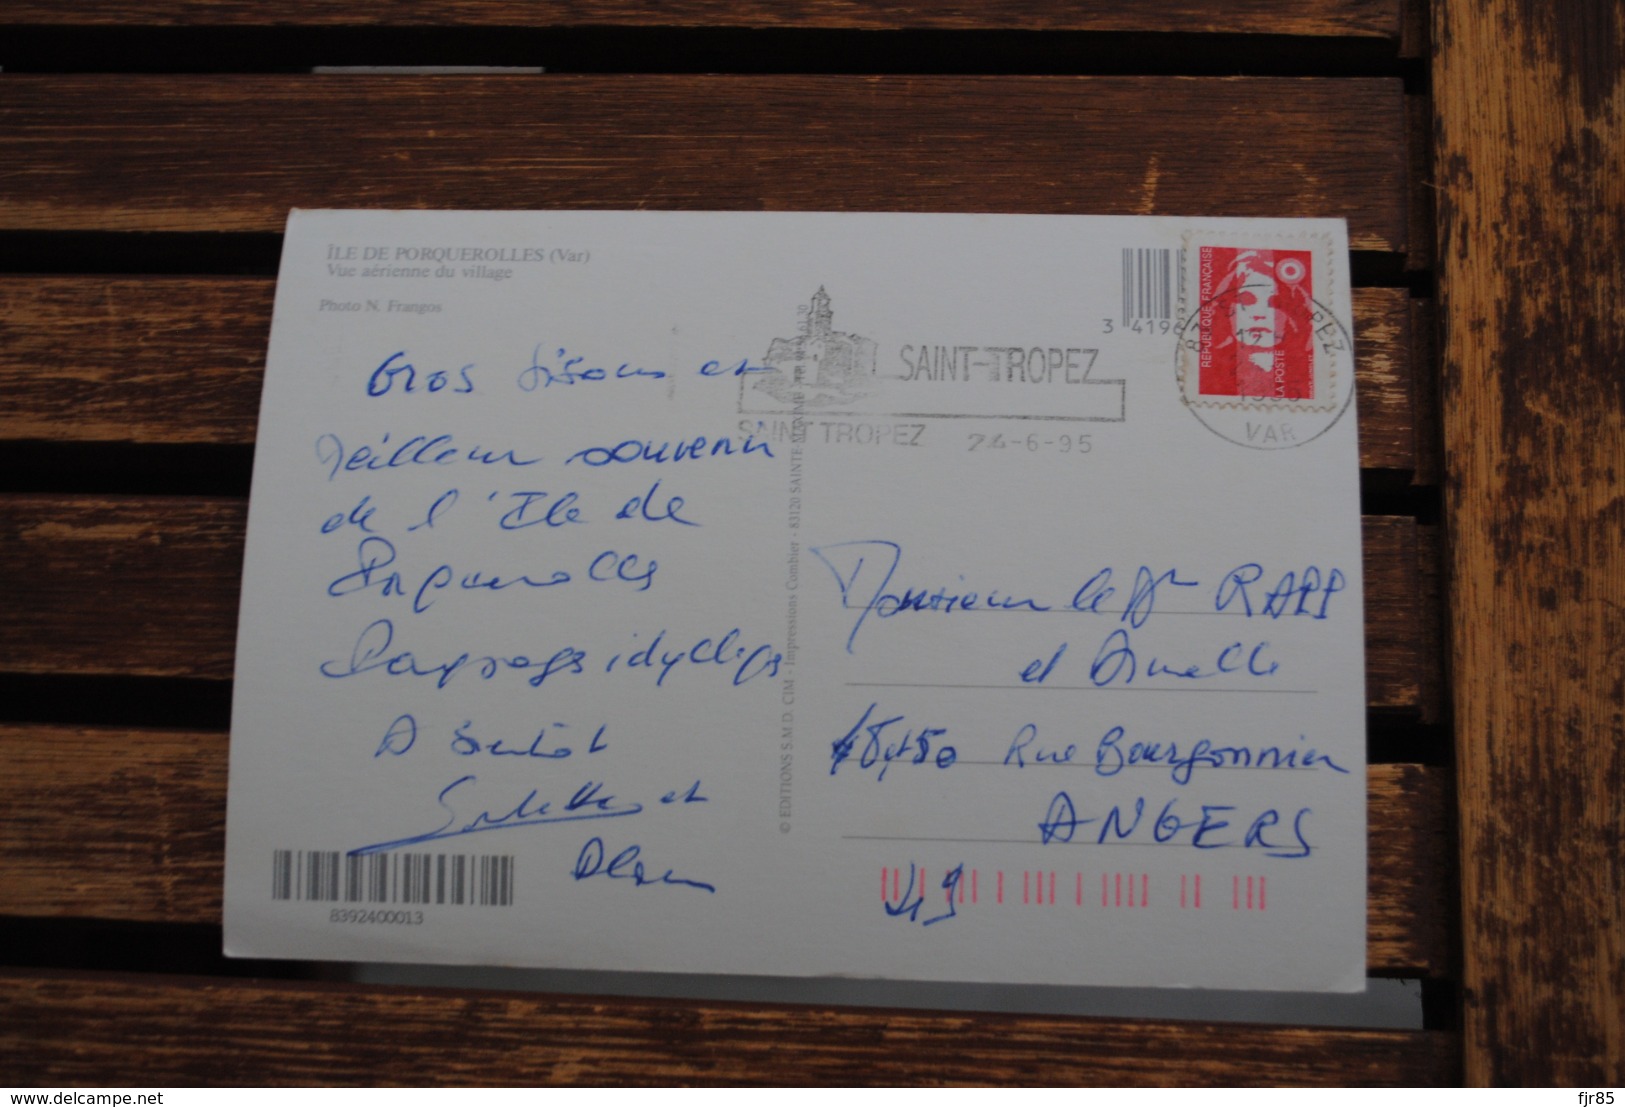 ÎLE DE PORQUEROLLES (Var)
Vue aérienne du village
Photo N. Frangos
Gros bisous et
Meilleur souvenir
de l'Ile de
Porquerolles
Paysages idylliques
A bientôt
et
Alain
8392400013
© EDITIONS S.M.D. CIM - Impressions Combier - 83120 SAINTE-MAXIME
3 4196
REPUBLIQUE FRANÇAISE
LA POSTE
VAR
SAINT-TROPEZ
SAINT TROPEZ 24-6-95
Monsieur le Dr RAPP
et Armelle
Rue Bourgonnier
ANGERS
49
www.delcampe.net
fjr85